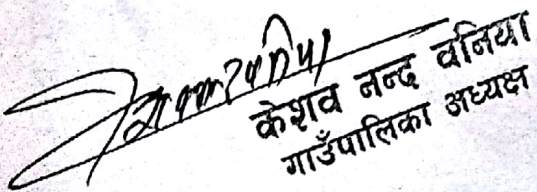 केशव नन्द वनिया
गाउँपालिका अध्यक्ष